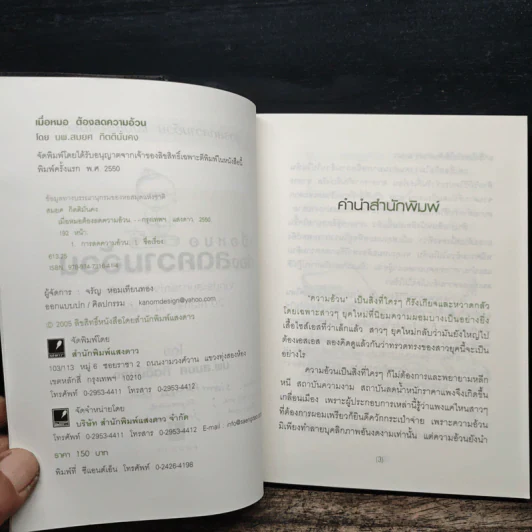 เมื่อหมอ ต้องลดความอ้วน
โดย นพ.สมยศ กิตติมั่นคง
จัดพิมพ์โดยได้รับอนุญาตจากเจ้าของลิขสิทธิ์เฉพาะตีพิมพ์ในหนังสือนี้
พิมพ์ครั้งแรก พ.ศ. 2550
ข้อมูลทางบรรณานุกรมของหอสมุดแห่งชาติ
สมยศ กิตติมั่นคง.
เมื่อหมอต้องลดความอ้วน.--กรุงเทพฯ : แสงดาว, 2550.
130 หน้า.
1. การลดความอ้วน. I. ชื่อเรื่อง.
613.25
ISBN
ผู้จัดการ จรัญ หอมเทียนทอง
ออกแบบปก / ศิลปกรรม kanomdesign@yahoo.com
© 2005 ลิขสิทธิ์หนังสือโดยสำนักพิมพ์แสงดาว
จัดพิมพ์โดย
สำนักพิมพ์แสงดาว
103/13 หมู่ 6 ซอยราชา 2 ถนนงามวงศ์วาน แขวงทุ่งสองห้อง
เขตหลักสี่ กรุงเทพฯ 10210
โทรศัพท์ 0-2953-4411 โทรสาร 0-2953-4412
จัดจำหน่ายโดย
บริษัท สำนักพิมพ์แสงดาว จำกัด
โทรศัพท์ 0-2953-4411 โทรสาร 0-2953-4412 E-mail :
ราคา 150 บาท
พิมพ์ที่ ซีแอนด์เอ็น โทรศัพท์ 0-2426-4198
คำนำสำนักพิมพ์
"ความอ้วน" เป็นสิ่งที่ใครๆ ก็รังเกียจและหวาดกลัว
โดยเฉพาะสาวๆ ยุคใหม่ที่นิยมความผอมบางเป็นอย่างยิ่ง
เสื้อไซส์เอสที่ว่าเล็กแล้ว สาวๆ ยุคใหม่กลับว่ามันยังใหญ่ไป
ต้องเอสเอส ลองคิดดูแล้วกันว่าทรวดทรงของสาวยุคนี้จะเป็น
อย่างไร
ความอ้วนเป็นสิ่งที่ใครๆ ก็ไม่ต้องการและพยายามหลีก
หนี สถาบันความงาม สถาบันลดน้ำหนักราคาแพงจึงเกิดขึ้น
เกลื่อนเมือง เพราะผู้ประกอบการเหล่านี้รู้ว่าแพงแค่ไหนสาวๆ
ที่ต้องการผอมเพรียวก็ยินดีควักกระเป๋าจ่าย เพราะความอ้วน
มิเพียงทำลายบุคลิกภาพอันงดงามเท่านั้น แต่ความอ้วนยังนำ
(3)